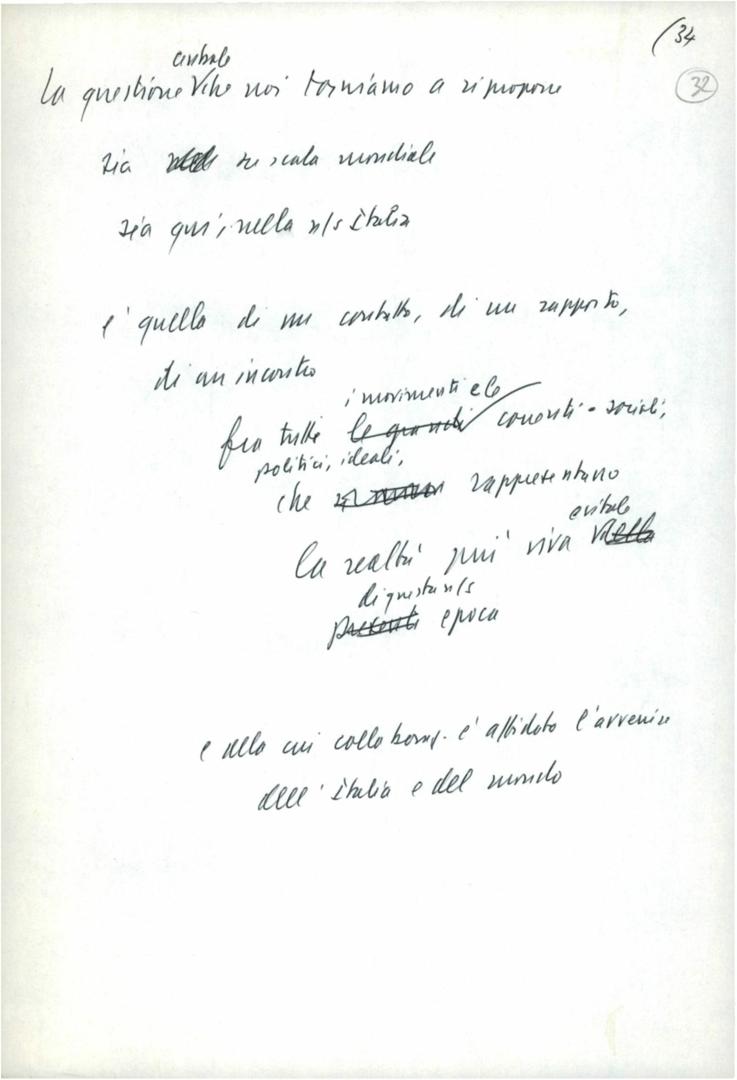 (34
32
centrale
La questione che noi torniamo a riproporre
sia su scala mondiale
sia qui, nella n/s Italia
e' quella di un contatto, di un rapporto,
di un incontro
i movimenti e le
fra tutti le grandi correnti - sociali,
politici, ideali,
che rappresentano
la realtà più viva
e vitale
di questa n/s
presenti epoca
e alla cui collaboraz. e' affidato l'avvenire
dell'Italia e del mondo